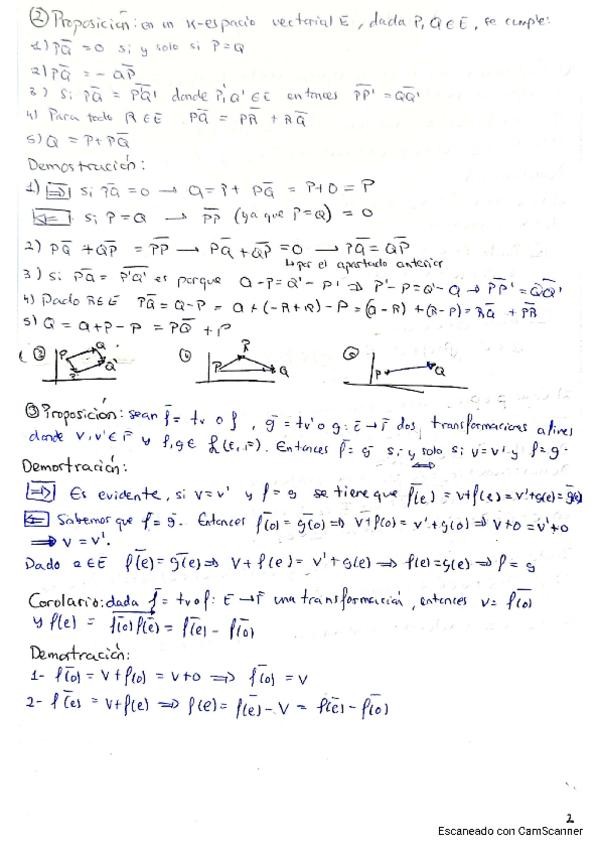 ② Proposición: en un K-espacio vectorial E, dada P, Q ∈ E, se cumple:
1) PQ̄ = 0 si y solo si P = Q
2) PQ̄ = - QP̄
3) Si PQ̄ = P'Q̄' donde P', Q' ∈ E entonces PP̄' = QQ̄'
4) Para todo R ∈ E PQ̄ = PR̄ + RQ̄
5) Q = P + PQ̄
Demostración:
1) ⇒ Si PQ̄ = 0 → Q = P + PQ̄ = P + 0 = P
⇐ Si P = Q → PP̄ (ya que P = Q) = 0
2) PQ̄ + QP̄ = PP̄ → PQ̄ + QP̄ = 0 → PQ̄ = QP̄
↳ por el apartado anterior
3) Si PQ̄ = P'Q̄' es porque Q - P = Q' - P' ⇒ P' - P = Q' - Q → PP̄' = QQ̄'
4) Dado R ∈ E PQ̄ = Q - P = Q + (-R + R) - P = (Q - R) + (R - P) = RQ̄ + PR̄
5) Q = Q + P - P = PQ̄ + P
③ P Q Q' P' ④ P R Q ⑤ P Q
③ Proposición: sean f̄ = tv o f, ḡ = tv' o g: Ē → F̄ dos transformaciones afines
donde v, v' ∈ F̄ y f, g ∈ L(E, F). Entonces f̄ = ḡ si y solo si v = v' y f = g.
⇔
Demostración:
⇒ Es evidente, si v = v' y f = g se tiene que f̄(e) = v + f(e) = v' + g(e) = ḡ(e)
⇐ Sabemos que f̄ = ḡ. Entonces f̄(0) = ḡ(0) ⇒ v + f(0) = v' + g(0) ⇒ v + 0 = v' + 0
⇒ v = v'.
Dado e ∈ E f̄(e) = ḡ(e) ⇒ v + f(e) = v' + g(e) ⇒ f(e) = g(e) ⇒ f = g
Corolario: dada f̄ = tv o f: Ē → F̄ una transformación, entonces v = f̄(0)
y f(e) = f̄(0)f̄(e) = f̄(e) - f̄(0)
Demostración:
1- f̄(0) = v + f(0) = v + 0 ⇒ f̄(0) = v
2- f̄(e) = v + f(e) ⇒ f(e) = f̄(e) - v = f̄(e) - f̄(0)
2
Escaneado con CamScanner